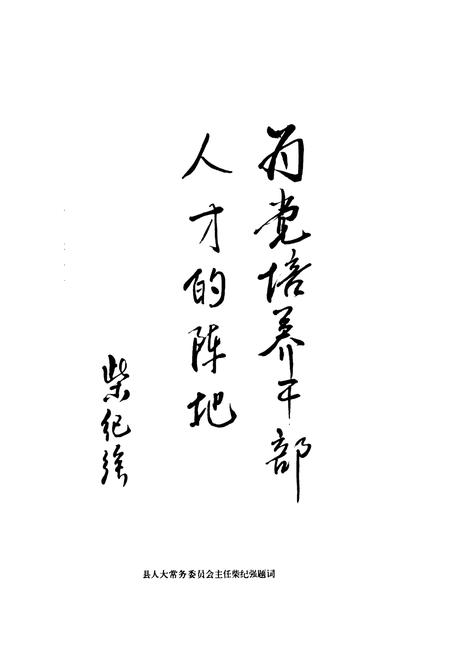 为党培养干部
人才的阵地
柴纪强
县人大常务委员会主任柴纪强题词